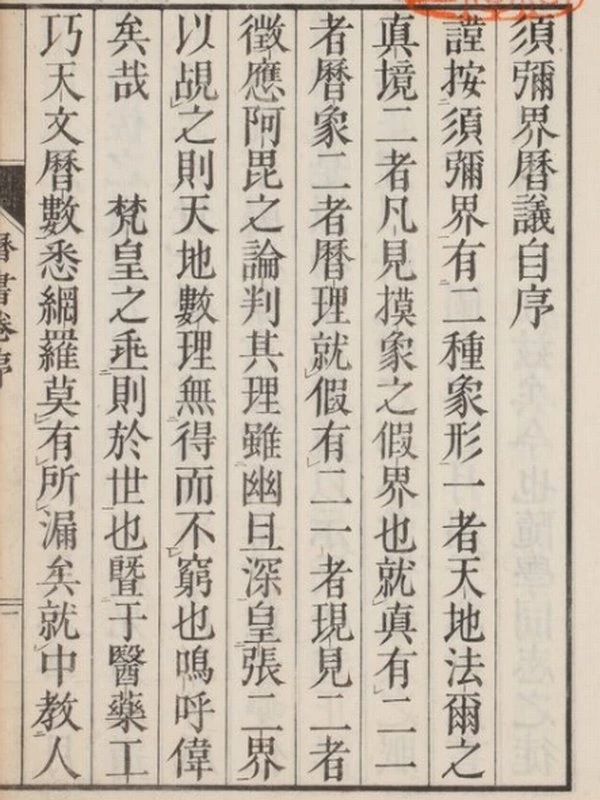 須彌界曆議自序
謹按須彌界有二種象形一者天地法爾之
真境二者凡見摸象之假界也就真有二一
者曆象二者曆理就假有二一者現見二者
徵應阿毘之論判其理雖幽且深皇張二界
以覘之則天地數理無得而不窮也嗚呼偉
矣哉　梵皇之垂則於世也曁于醫藥工
巧天文曆數悉網羅莫有所漏矣就中教人
曆書卷序
一